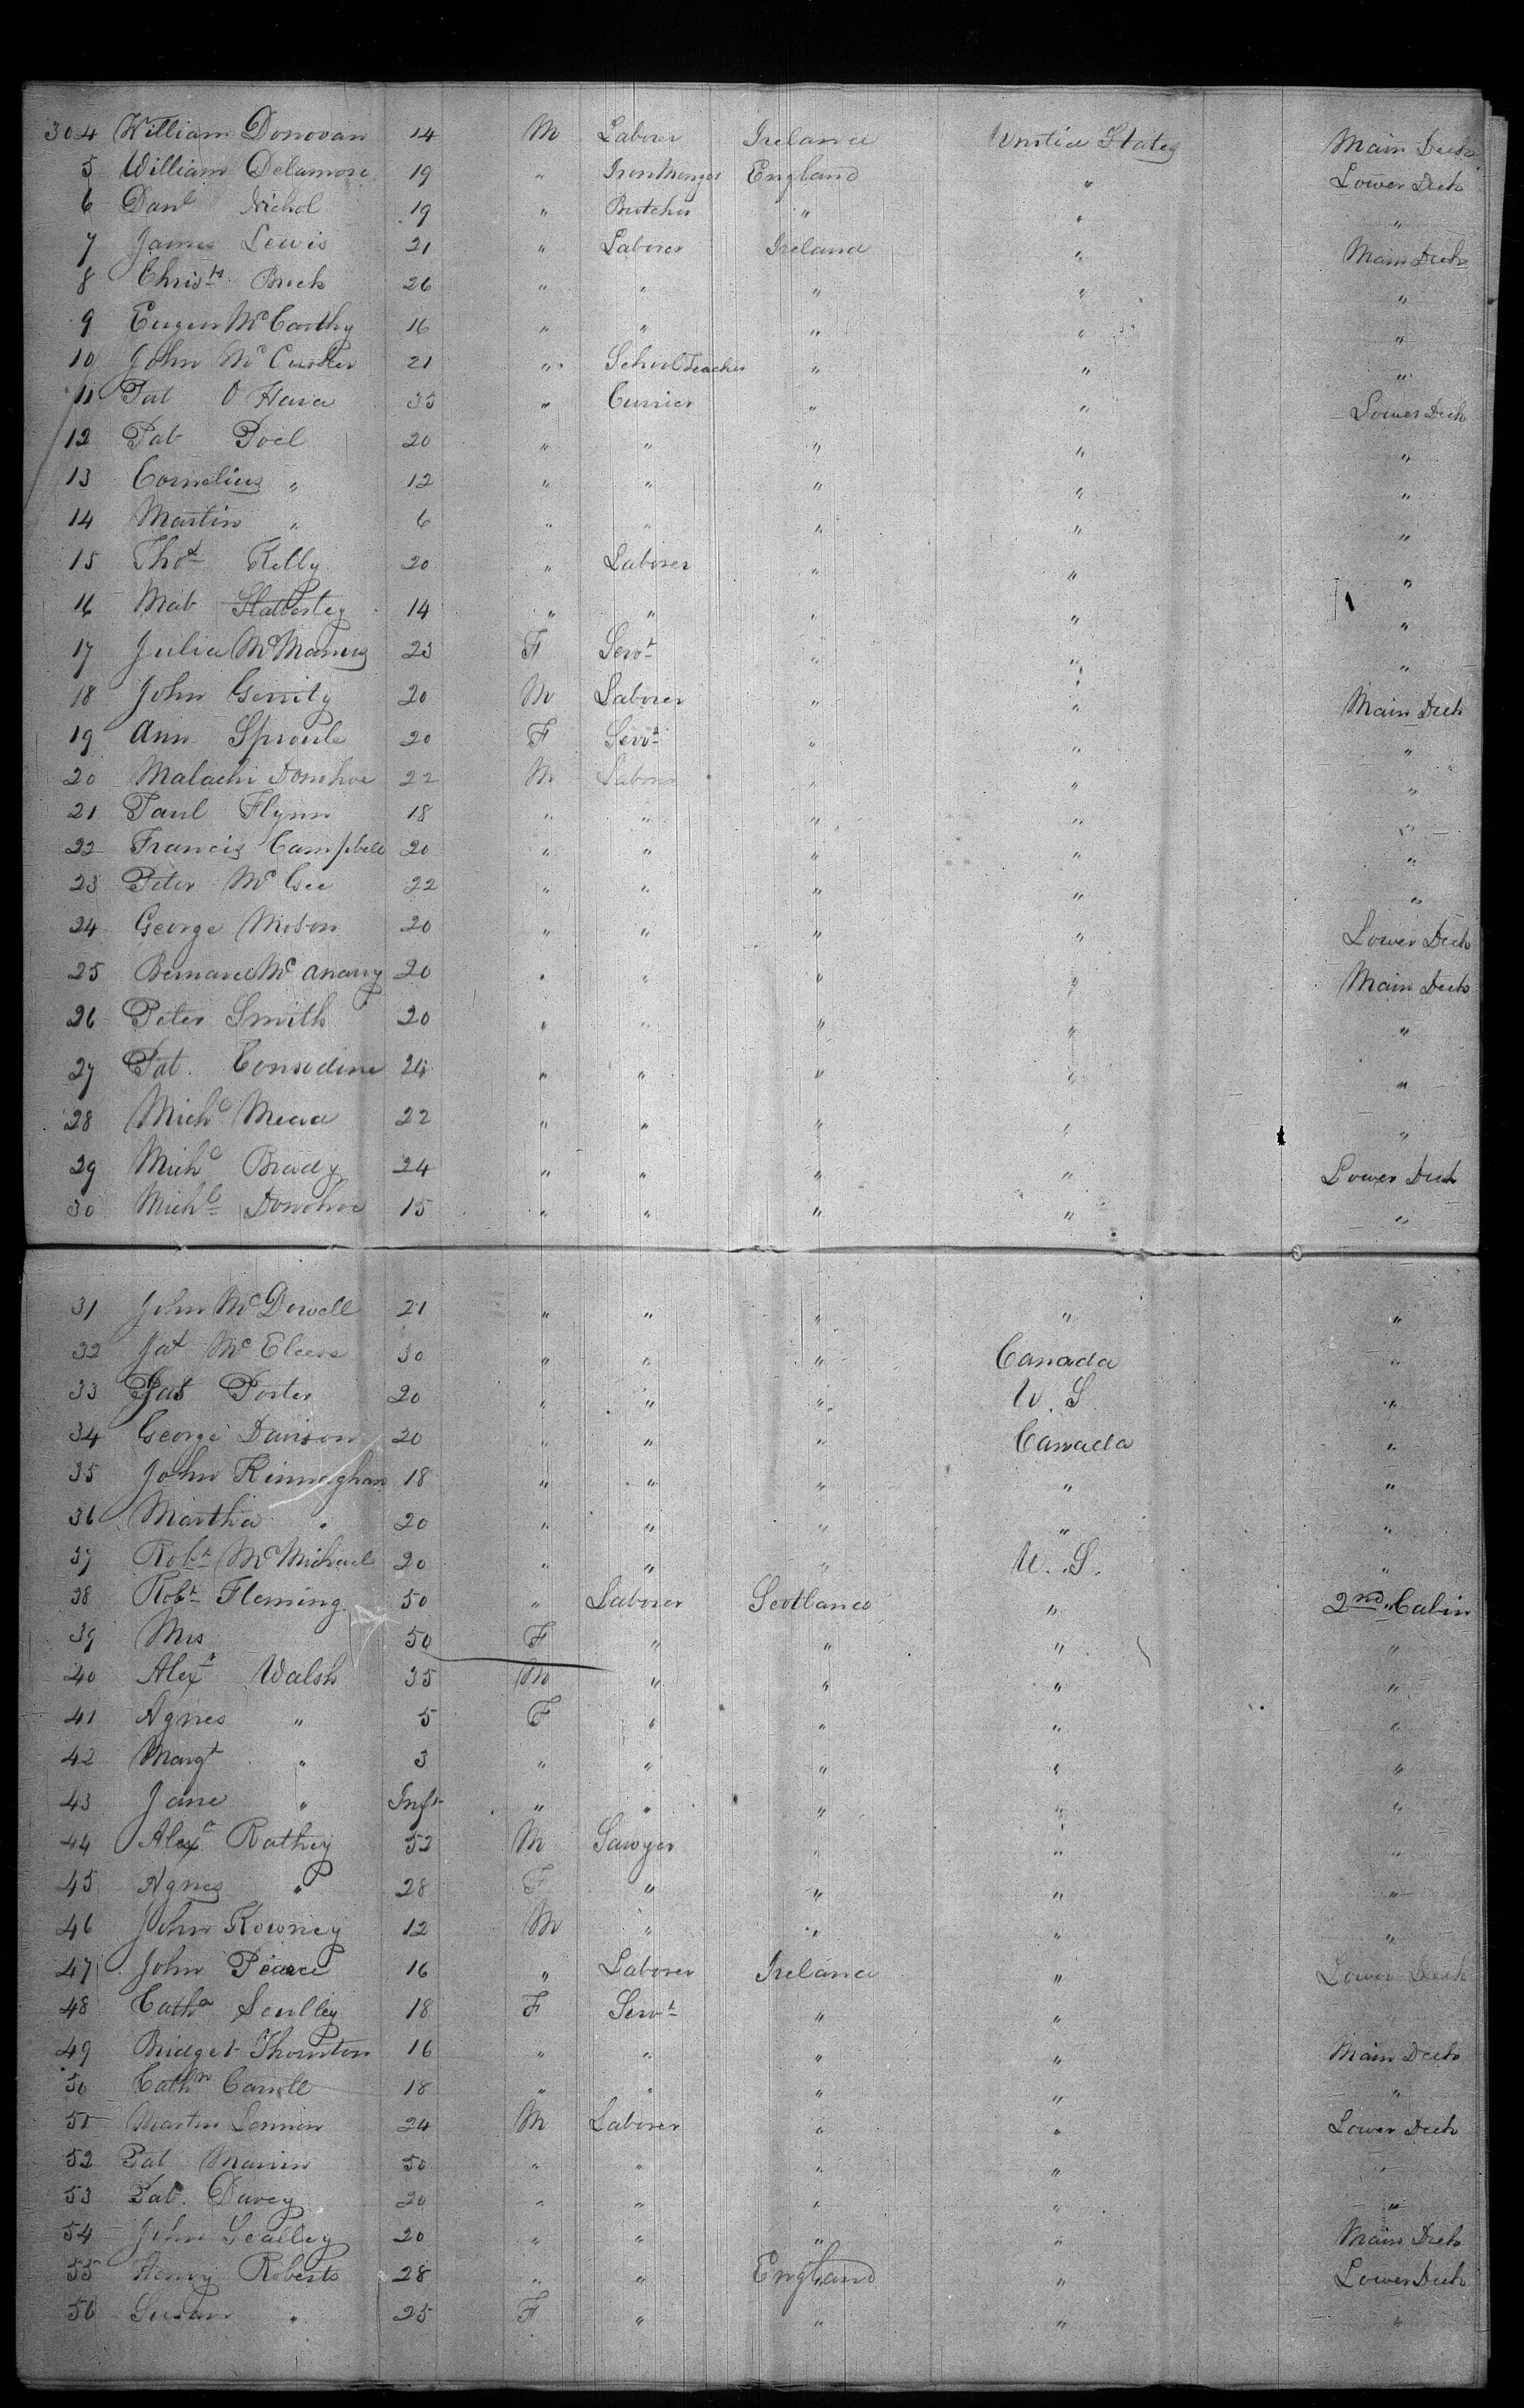 304 William Donovan 14 M Laborer Ireland United States Main Deck
5 William Delamore 19 " Iron Monger England " Lower Deck
6 Danl Nichol 19 " Butcher " " "
7 James Lewis 21 " Laborer Ireland " Main Deck
8 Christr Breck 26 " " " " "
9 Eugen McCarthy 16 " " " " "
10 John McCusker 21 " School Teacher " " "
11 Pat O Hara 35 " Currier " " Lower Deck
12 Pat Poel 20 " " " " "
13 Cornelius " 12 " " " " "
14 Martin " 6 " " " " "
15 Thos Kelly 20 " Laborer " " "
16 Mat Slattertey 14 " " " " "
17 Julia McManus 23 F Servt " " "
18 John Gerrity 20 M Laborer " " Main Deck
19 Ann Sproule 20 F Servt " " "
20 Malachi Donohoe 22 M Laborer " " "
21 Paul Flynn 18 " " " " "
22 Francis Campbell 20 " " " " "
23 Peter McGee 22 " " " " "
24 George 20 " " " " Lower Deck
25 Bernard Mc Anany 20 " " " " Main Deck
26 Peter Smith 20 " " " " "
27 Pat. Consodine 24 " " " " "
28 Michl Mead 22 " " " " "
29 Michl Brady 24 " " " " Lower Deck
30 Michl Donohoe 15 " " " " "
31 John McDowell 21 " " " " "
32 Jas 30 " " " Canada "
33 Jas Porter 20 " " " U. S. "
34 George Davison 20 " " " Canada "
35 John Kinnaghan 18 " " " " "
36 Martha " 20 " " " " "
37 Robt McMichael 20 " " " U. S. "
38 Robt Fleming 50 " Laborer Scotland " 2nd Cabin
39 Mrs 50 F " " " "
40 Alexr Walsh 35 M " " " "
41 Agnes " 5 F " " " "
42 Margt " 3 " " " " "
43 Jane " Inft " " " " "
44 Alexr Rathey 52 M Sawyer " " "
45 Agnes " 28 F " " " "
46 John Rowney 12 M " " " "
47 John Pearce 16 " Laborer Ireland " Lower Deck
48 Catha Scully 18 F Servt " "
49 Bridget Thornton 16 " " " " Main Deck
50 Cathn Carroll 18 " " " " "
51 Martin Lennon 24 M Laborer " " Lower Deck
52 Pat 50 " " " " "
53 Pat. Davey 20 " " " " "
54 John Scalley 20 " " " " Main Deck
55 Henry Roberts 28 " " England " Lower Deck
56 Susan " 25 F " " " "